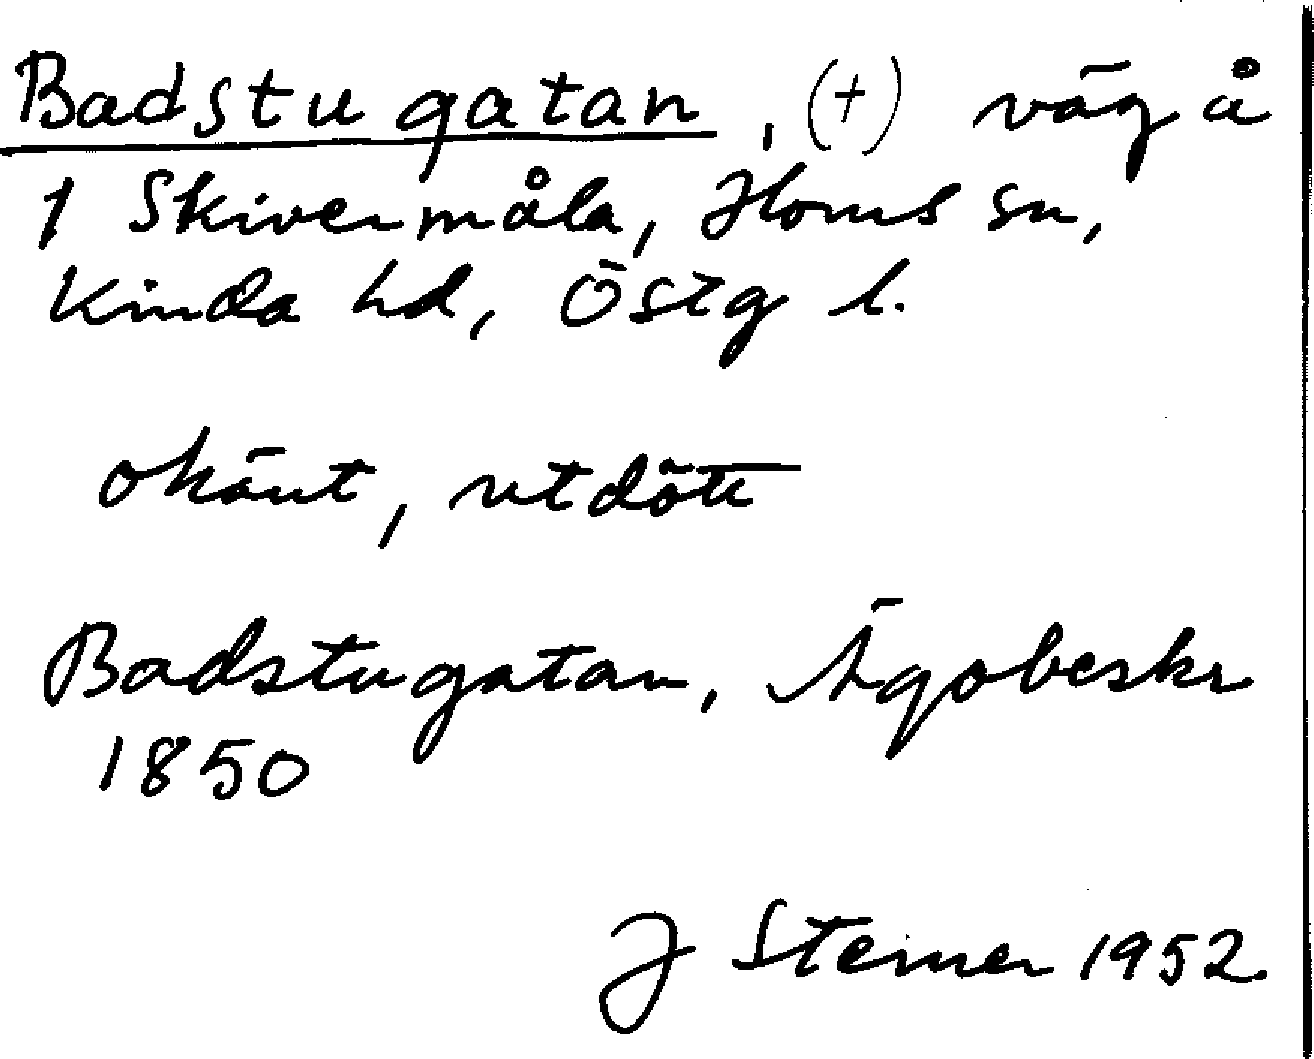 Badstugatan, (+) väg å
1 Skivermåla, Horns sn,
Kinda hd, Östg l.
okänt, utdött
Badstugatan, Ägobeskr
1850
J Steiner 1952